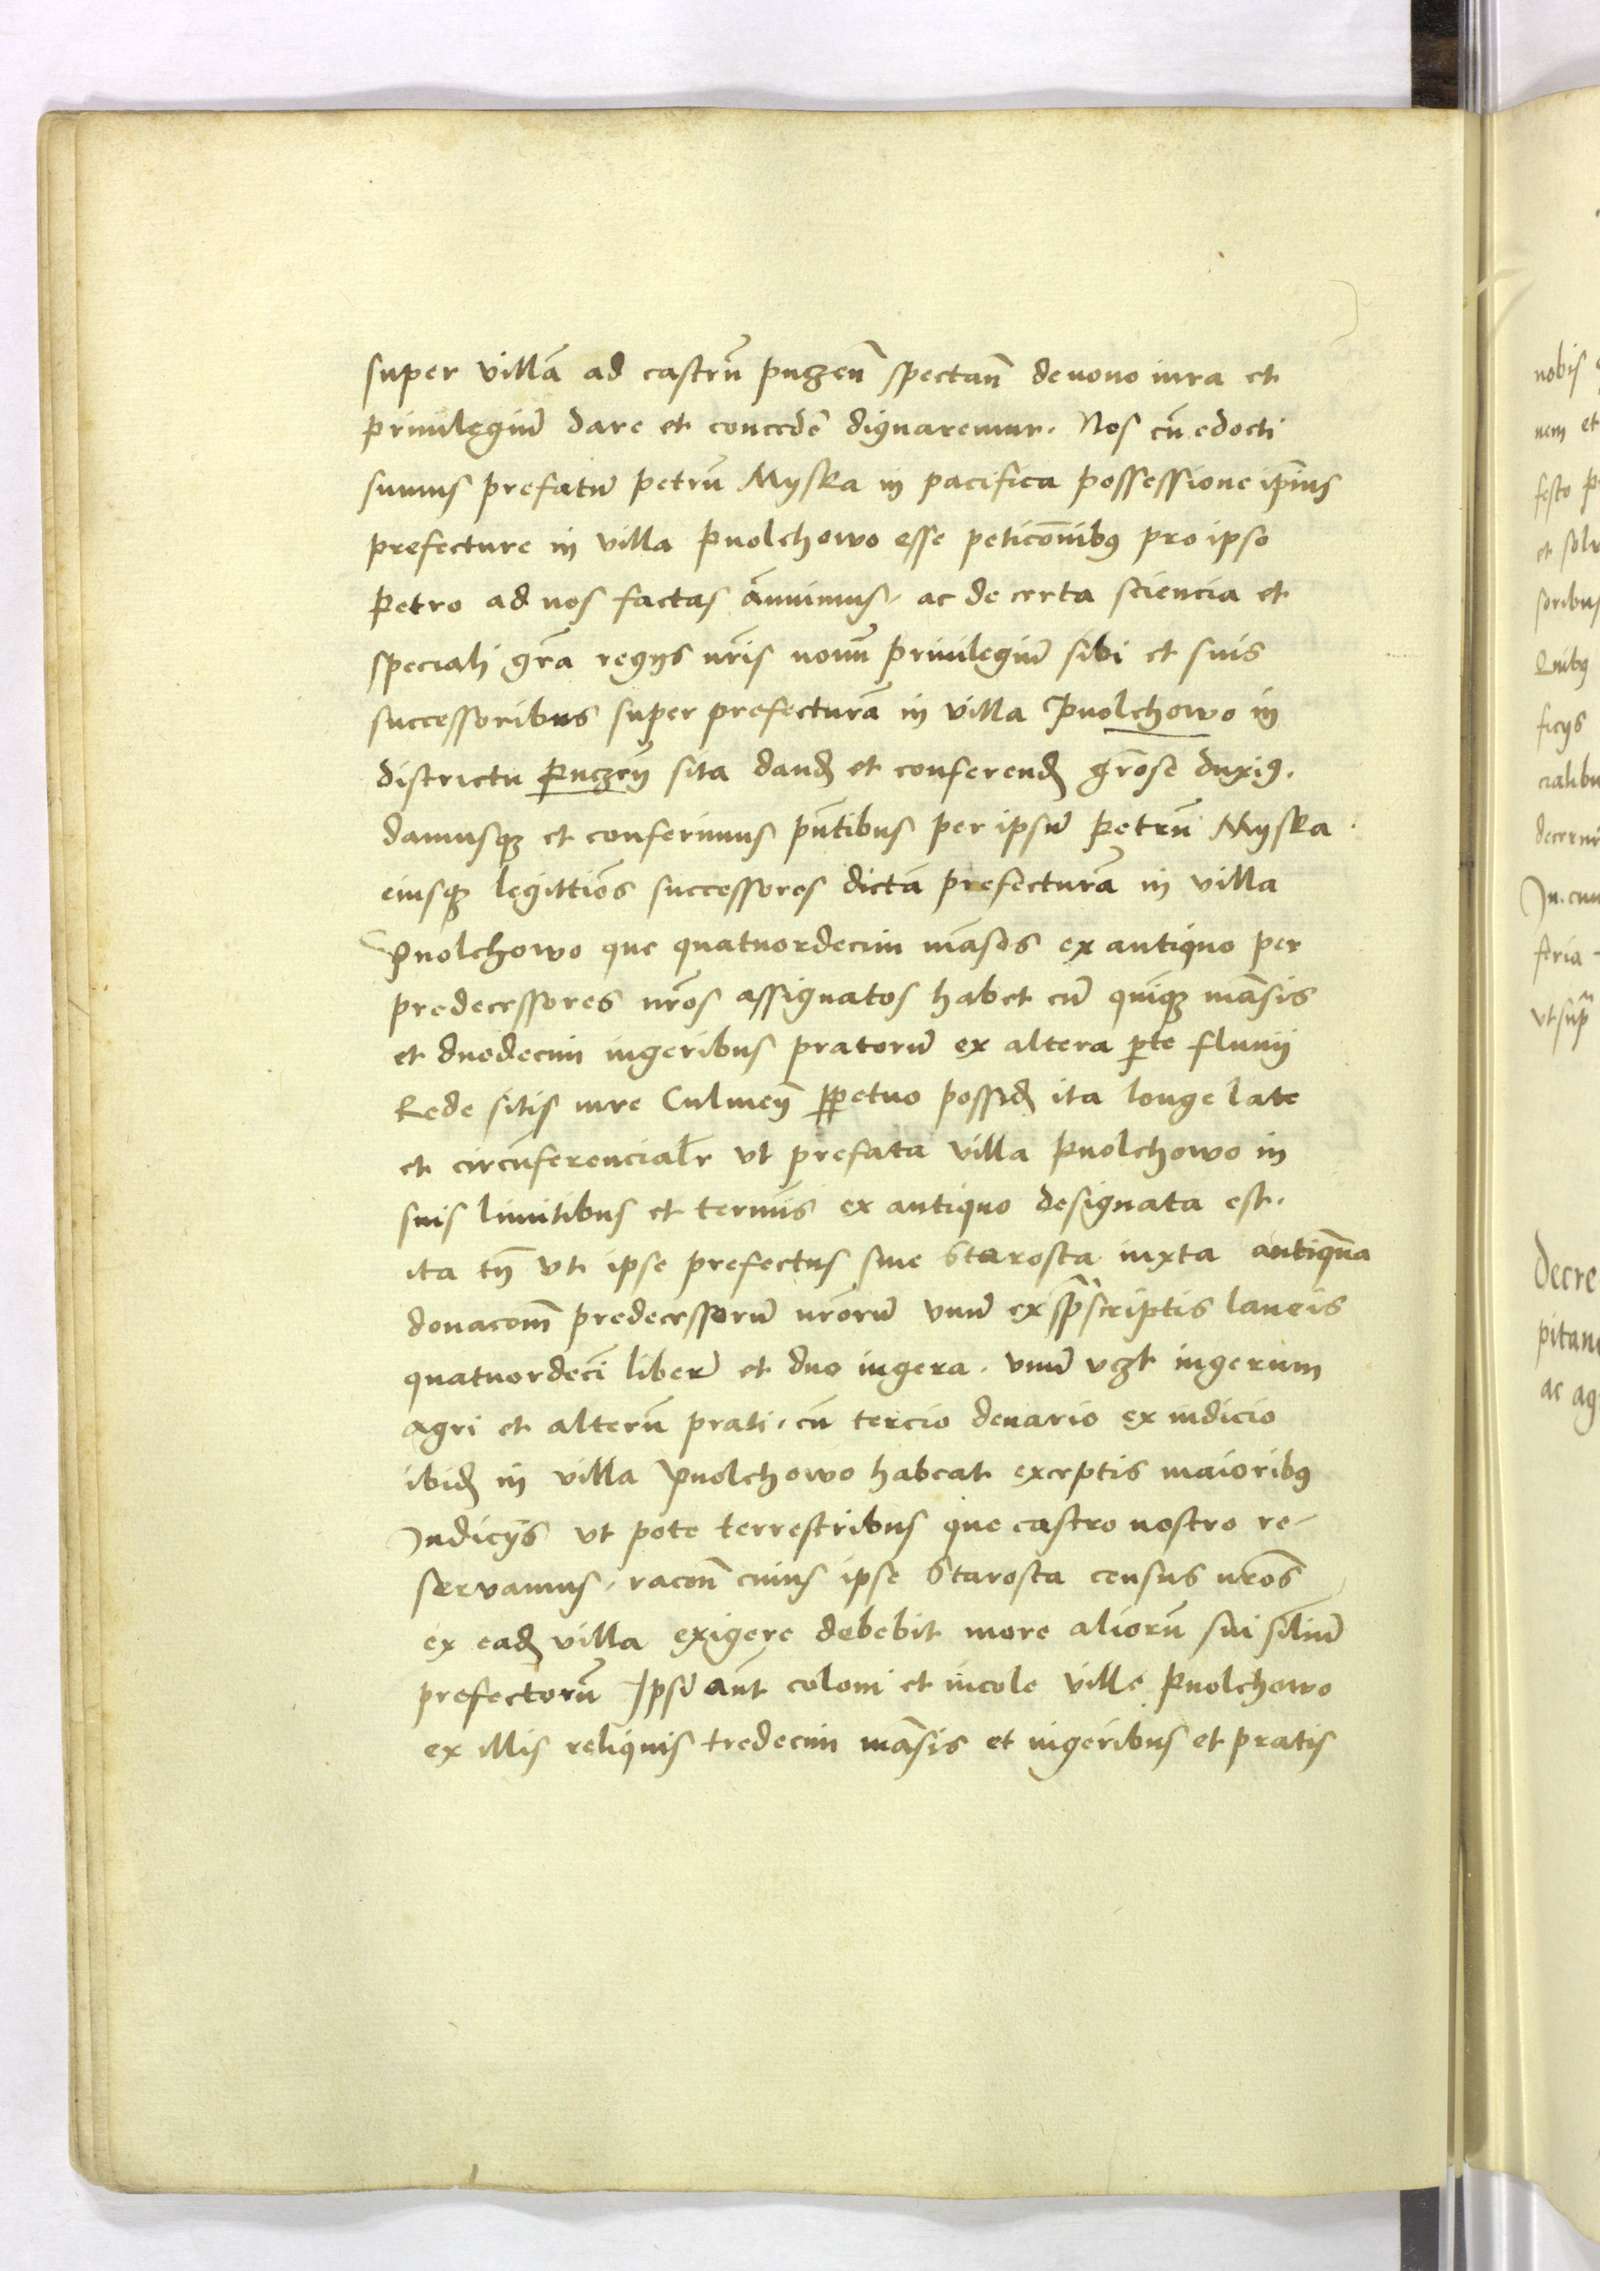 super villā ad castrū puczen̄ spectan̄ de nouo iura et
priuilegiū dare et concedē dignaremur. Nos cū edocti
sumus prefatū petrū Myska in pacifica possessione ip̄ius
prefecture in villa puolchowo esse peticōnibꝫ pro ipso
petro ad nos factas ānuimus, ac de certa sciencia et
speciali gr̄a regijs nr̄is nouū priuilegiū sibi et suis
successoribus super prefecturā in villa Puolchowo in
districtu puczen̄ sita dand̄ et conferend̄ gr̄ose duxiꝫ.
damusqꝫ et conferimus pn̄tibus per ipsū petrū Myska
eiusqꝫ legittiōs successores dictā prefecturā in villa
Puolchowo que quatuordecim māsos ex antiquo per
predecessores nr̄os assignatos habet cū quīqꝫ māsis
et duodecim iugeribus pratorū ex altera ꝑte fluuij
Rede sitis iure Culmen̄ ꝑpetuo possid̄ ita longe late
et circūferencialr̄ vt prefata villa puolchowo in
suis limitibus et termīs ex antiquo designata est.
ita tn̄ vt ipse prefectus siue Starosta iuxta antiquā
donacōm̄ predecessorū nr̄orū vnū ex sp̄ascriptis laneis
quatuordecī liberū et duo iugera. vnū vczt iugerum
agri et alterū prati. cū tercio denario ex iudicio
ibid̄ in villa Puolchowo habeat exceptis maioribꝫ
Iudicijs vt pote terrestribus que castro nostro re-
servamus, racōn̄ cuius ipse Starosta census nr̄os
ex ead̄ villa exigere debebit more aliorū sui silīū
prefectorū Ipsi aūt coloni et incole ville puolchowo
ex illis reliquis tredecim māsis et iugeribus et pratis